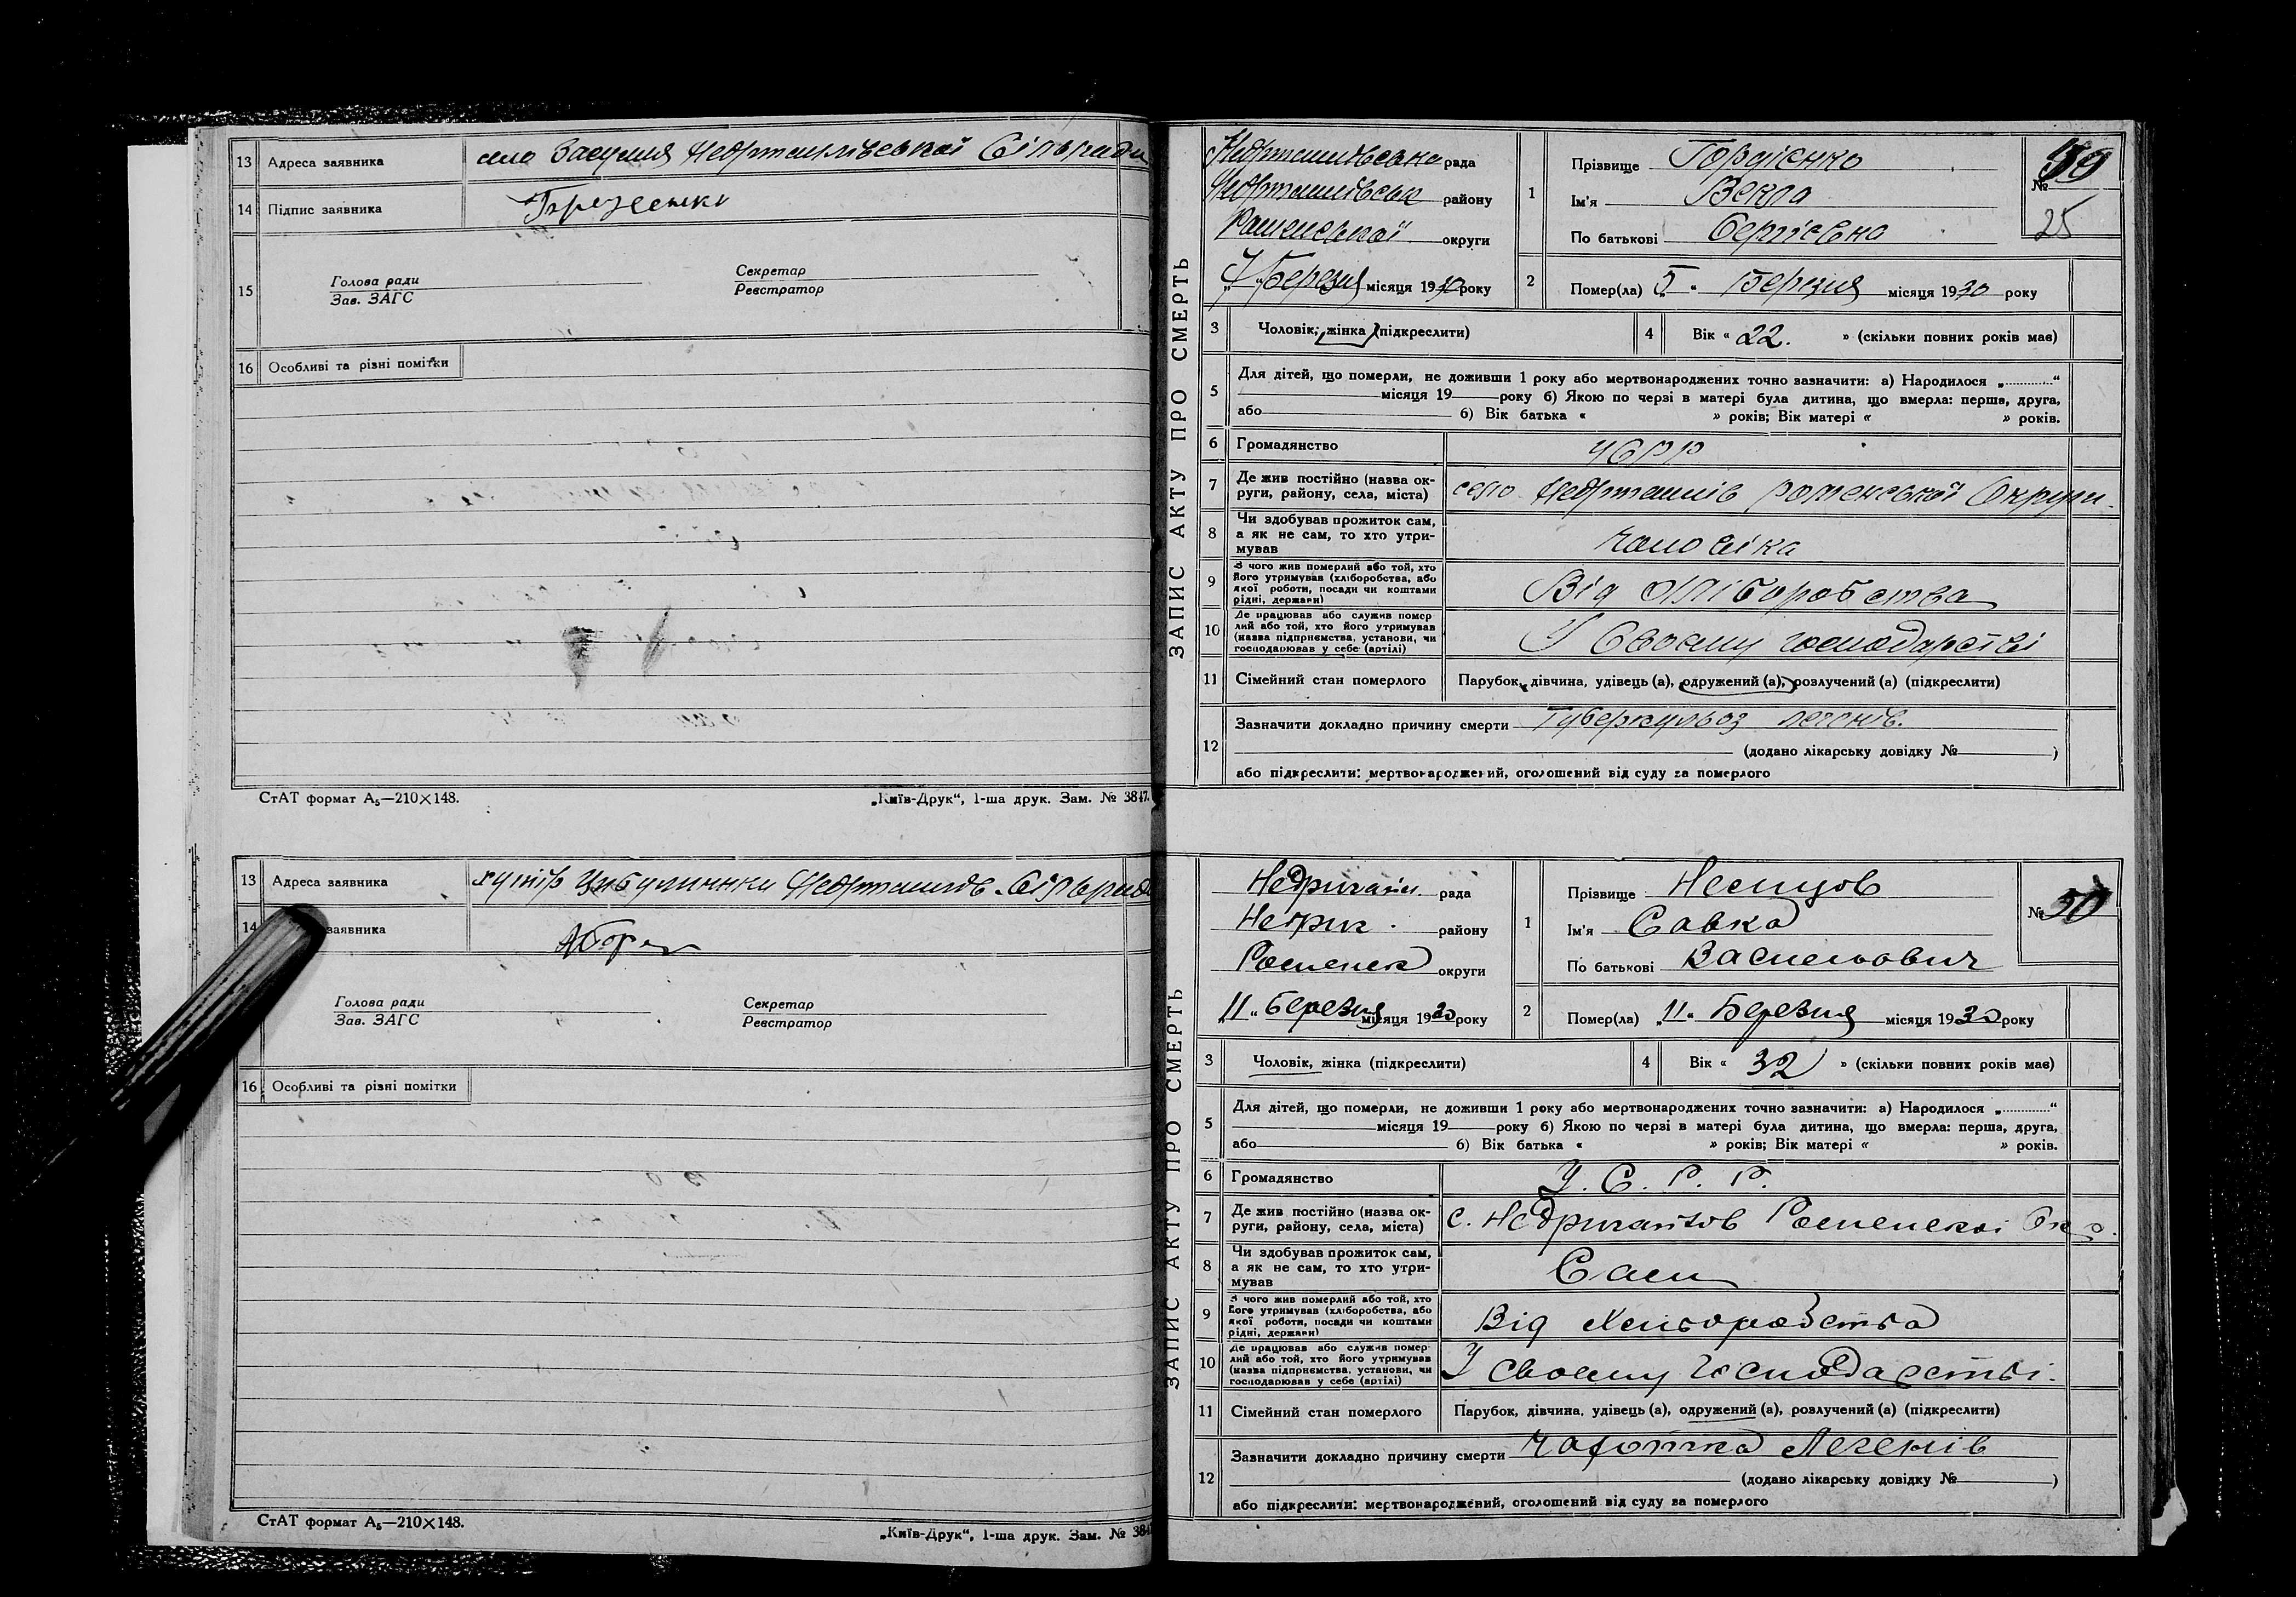 13 Адреса заявника село Засулля Недригайлівської Сільради
14 Підпис заявника
15 Голова ради
Зав. ЗАГС
Секретар
Реєстратор
16 Особливі та різні помітки
СтАТ формат А₅—210×148. „Київ-Друк“, 1-ша друк. Зам. № 3847.
13 Адреса заявника хутір Недригайлів. Сільради
14 заявника
Голова ради
Зав. ЗАГС
Секретар
Реєстратор
16 Особливі та різні помітки
СтАТ формат А₅—210×148. „Київ-Друк“, 1-ша друк. Зам. № 384
ЗАПИС АКТУ ПРО СМЕРТЬ
Недригайлівська рада
Недригайлівськ району
Роменської округи
„7“ Березня місяця 1930 року
1 Прізвище Гордієнко
Ім'я Векла
По батькові Сергіевна
№ 25
2 Помер(ла) „5“ Березня місяця 1930 року
3 Чоловік, жінка (підкреслити)
4 Вік « 22. » (скільки повних років має)
5 Для дітей, що померли, не доживши 1 року або мертвонароджених точно зазначити: а) Народилося „............“
місяця 19 року б) Якою по черзі в матері була дитина, що вмерла: перша, друга,
або б) Вік батька « » років; Вік матері « » років.
6 Громадянство УСРР
7 Де жив постійно (назва ок-
руги, району, села, міста) село Недригайлів Роменської Округи.
8 Чи здобував прожиток сам,
а як не сам, то хто утри-
мував чоловіка
9 З чого жив померлий або той, хто
його утримував (хліборобства, або
якої роботи, посади чи коштами
рідні, держави) Від хліборобства
10 Де працював або служив помер
лий або той, хто його утримував
(назва підприємства, установи, чи
господарював у себе (артілі) У Своєму господарстві
11 Сімейний стан померлого Парубок, дівчина, удівець (а), одружений (а), розлучений (а) (підкреслити)
12 Зазначити докладно причину смерти Туберкульоз легенів.
(додано лікарську довідку № )
або підкреслити: мертвонароджений, оголошений від суду за померлого
ЗАПИС АКТУ ПРО СМЕРТЬ
Недригайл рада
Недриг. району
Роменск округи
„11“ Березня місяця 1930 року
1 Прізвище Немцов
Ім'я Савка
По батькові Васильович
№ 30
2 Помер(ла) „11“ Березня місяця 1930 року
3 Чоловік, жінка (підкреслити)
4 Вік « 32 » (скільки повних років має)
5 Для дітей, що померли, не доживши 1 року або мертвонароджених точно зазначити: а) Народилося „............“
місяця 19 року б) Якою по черзі в матері була дитина, що вмерла: перша, друга,
або б) Вік батька « » років; Вік матері « » років.
6 Громадянство У. С. Р. Р.
7 Де жив постійно (назва ок-
руги, району, села, міста) с. Недригайлов Роменскоі Окр.
8 Чи здобував прожиток сам,
а як не сам, то хто утри-
мував Сам
9 З чого жив померлий або той, хто
його утримував (хліборобства, або
якої роботи, посади чи коштами
рідні, держави) Від Хліборобства
10 Де працював або служив помер-
лий або той, хто його утримував
(назва підприємства, установи, чи
господарював у себе (артілі) У своєму господарстві.
11 Сімейний стан померлого Парубок, дівчина, удівець (а), одружений (а), розлучений (а) (підкреслити)
12 Зазначити докладно причину смерти чахотка Легенів
(додано лікарську довідку № )
або підкреслити: мертвонароджений, оголошений від суду за померлого